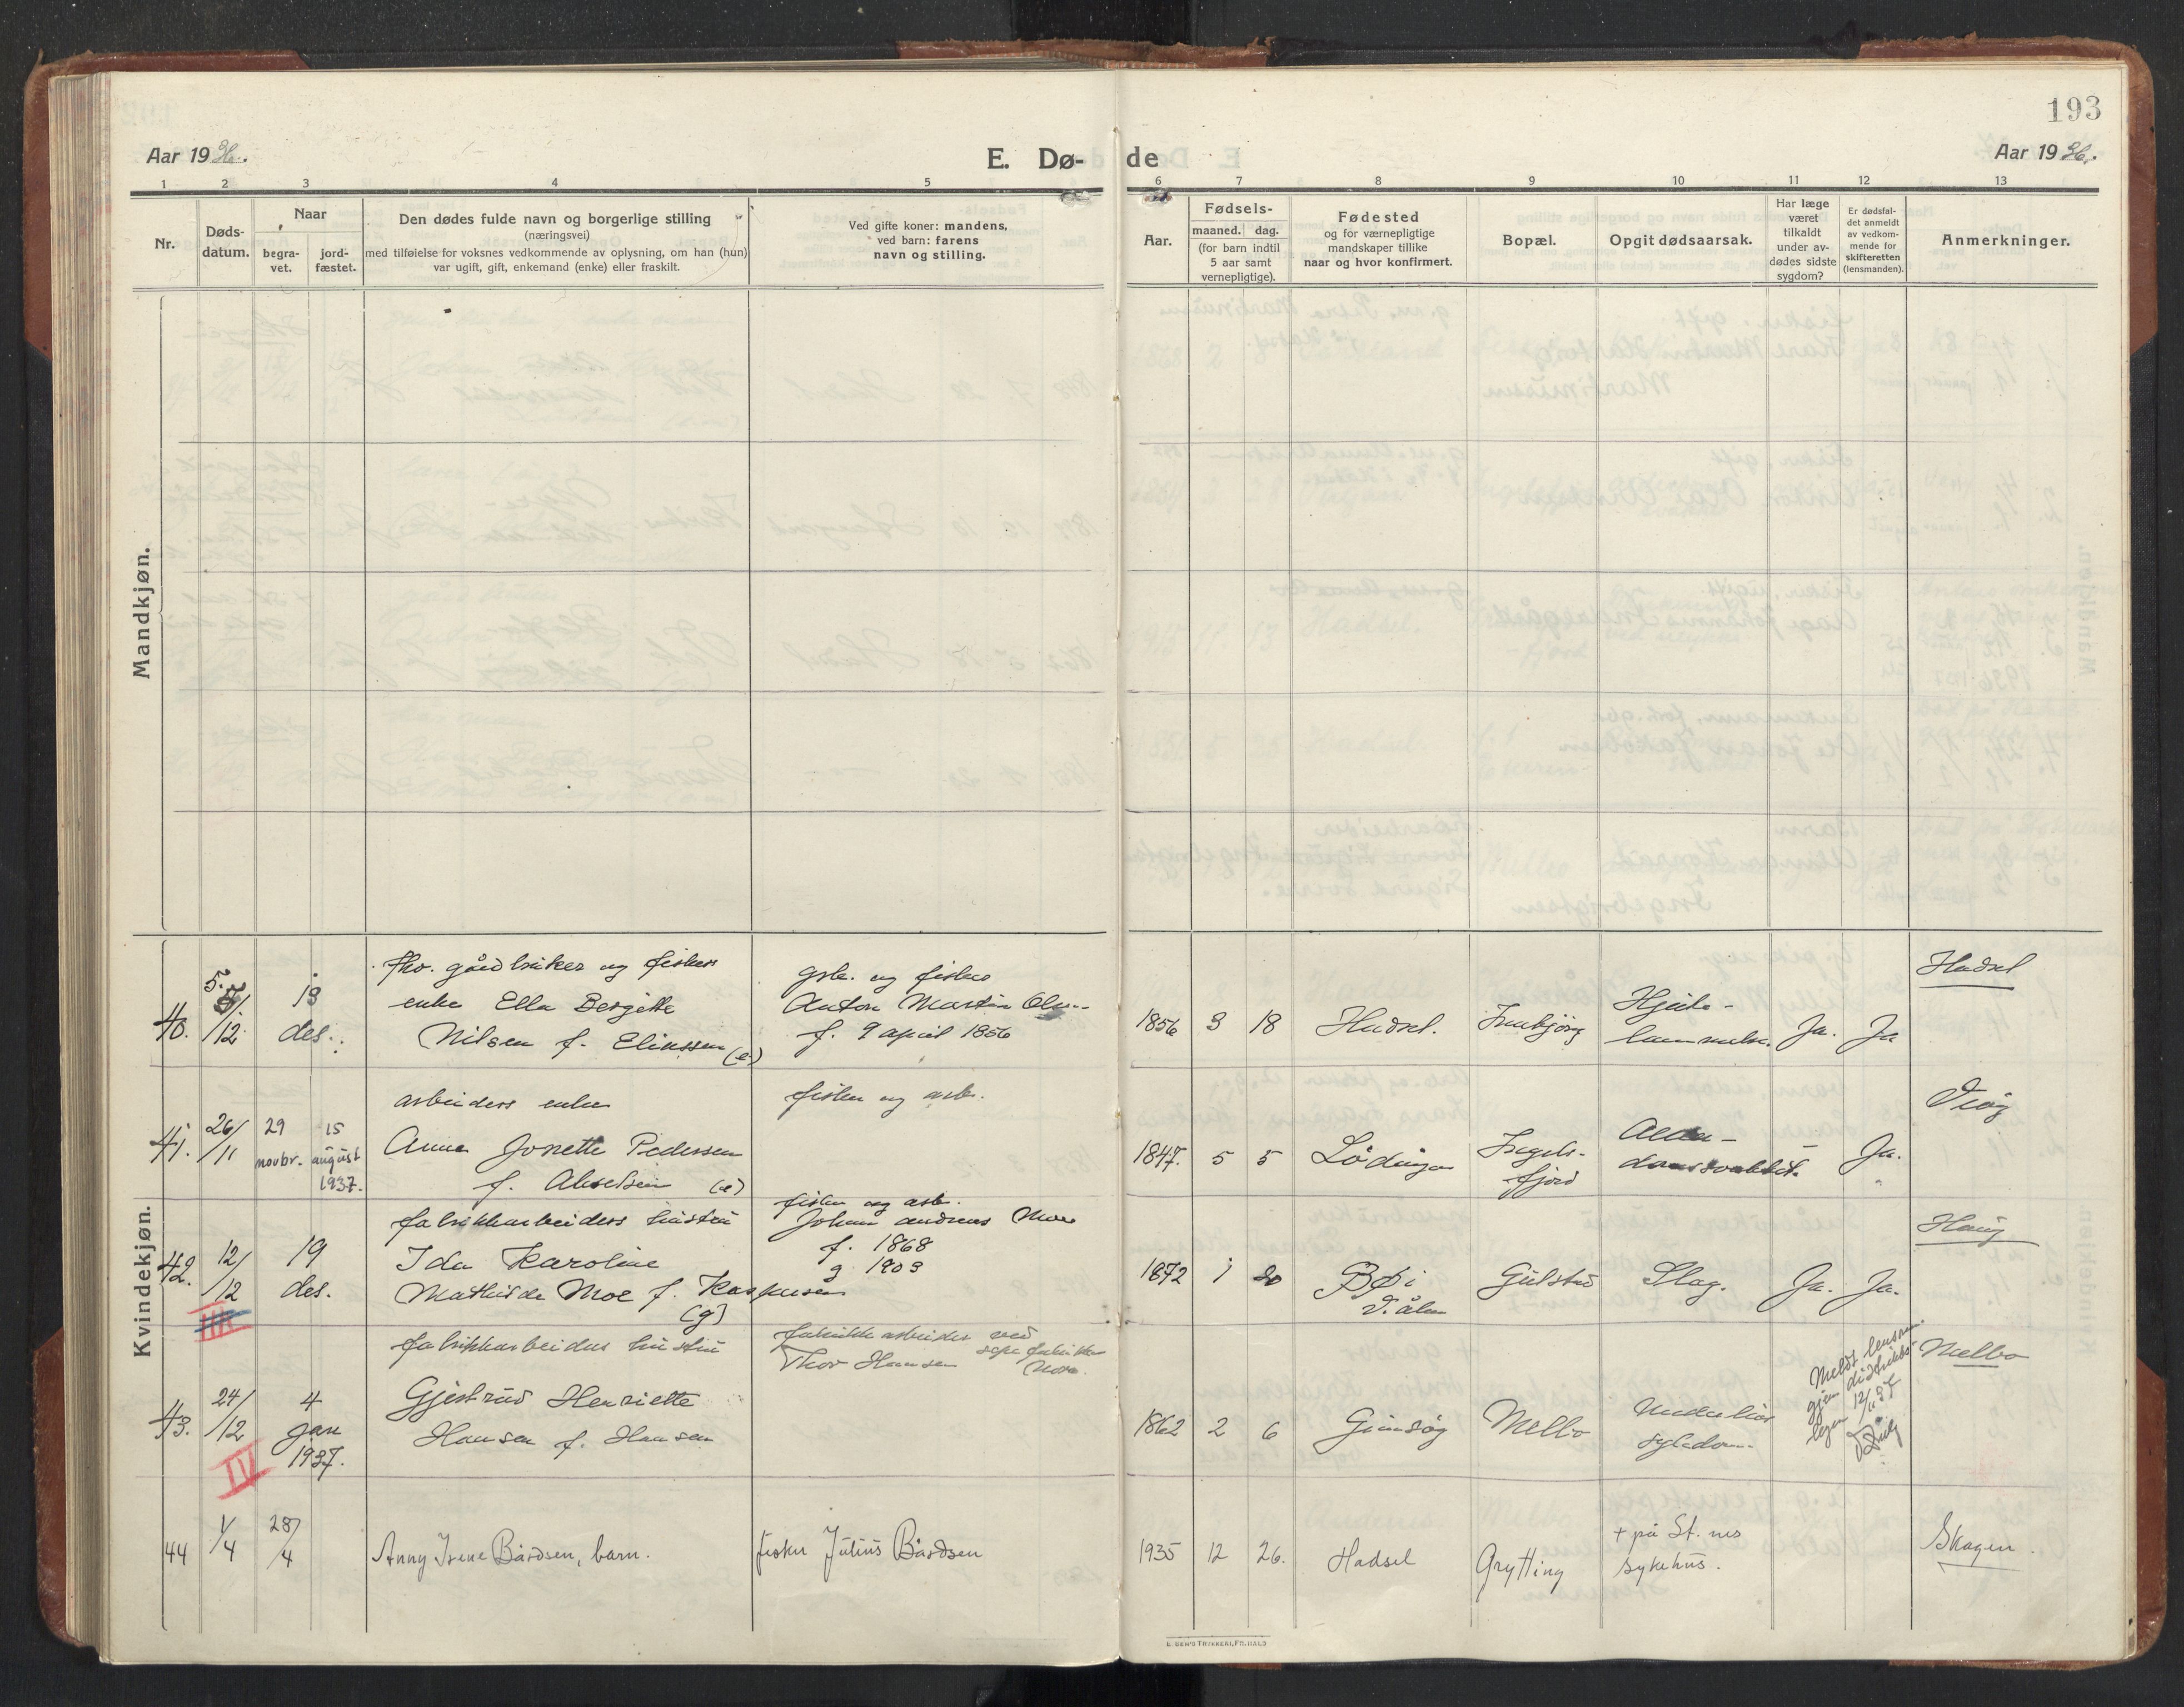 193
Aar 1936.
E. Dø-
de
Aar 1936.
1 2 3 4 5 6 7 8 9 10 11 12 13
Nr.
Døds-
datum.
Naar
begra-
vet.
jord-
fæstet.
Den dødes fulde navn og borgerlige stilling
(næringsvei)
med tilføielse for voksnes vedkommende av oplysning, om han (hun)
var ugift, gift, enkemand (enke) eller fraskilt.
Ved gifte koner: mandens,
ved barn: farens
navn og stilling.
Aar.
Fødsels-
maaned. dag.
(for barn indtil
5 aar samt
vernepligtige).
Fødested
og for værnepligtige
mandskaper tillike
naar og hvor konfirmert.
Bopæl.
Opgit dødsaarsak.
Har læge
været
tilkaldt
under av-
dødes sidste
sygdom?
Er dødsfal-
det anmeldt
av vedkom-
mende for
skifteretten
(lensmanden).
Anmerkninger.
Mandkjøn.
Kvindekjøn.
40.
5.
/12.
19
des.
fhv. gårdbruker og fiskers
enke Ella Bergitte
Nilsen f. Elinssen (e)
grb. og fisker
Anton Martin
f. 9 april 1856
1856 3 18 Hadsel.
Hjerte-
lammelse.
Ja. Ja
Hadsel
41.
26/
/11
29
novbr.
15
august
1937.
arbeiders enke
Anna Jonette Pedersen
f. Akselsen (e)
fisker og arb.
1847. 5 5 Lødingen
Ingels-
fjord
Alder-
domssvakhet.
- Ja.
42.
12/
/12
19
des.
III
fabrikkarbeiders hustru
Ida Karoline
Mathilde Moe f. Kaspersen
(g)
fisker og arb.
Johan Andreas Moe
f. 1868
g 1903
1872 1 20 Bø i
V. ålen
Gulstad
Slag.
Ja. Ja.
Haug
43.
24/
/12
4
jan
1937.
IV
fabrikkarbeiders hustru
Gjertrud Henriette
Hansen f. Hansen
fabrikkarbeider ved
Thor Hansen
1862 2 6 Gimsøy
Melbo
sykdom.
Meldt lensm.
gjen distrikts-
legen 12/1 37
Melbo
44
1/
4
28/
4
Anny Irene Bårdsen, barn.
fisker Julius Bårdsen
1935 12 26. Hadsel
Grytting
+ på St. nes
sykehus.
Skagen.
E. SEM'S TRYKKERI, FR.HALD